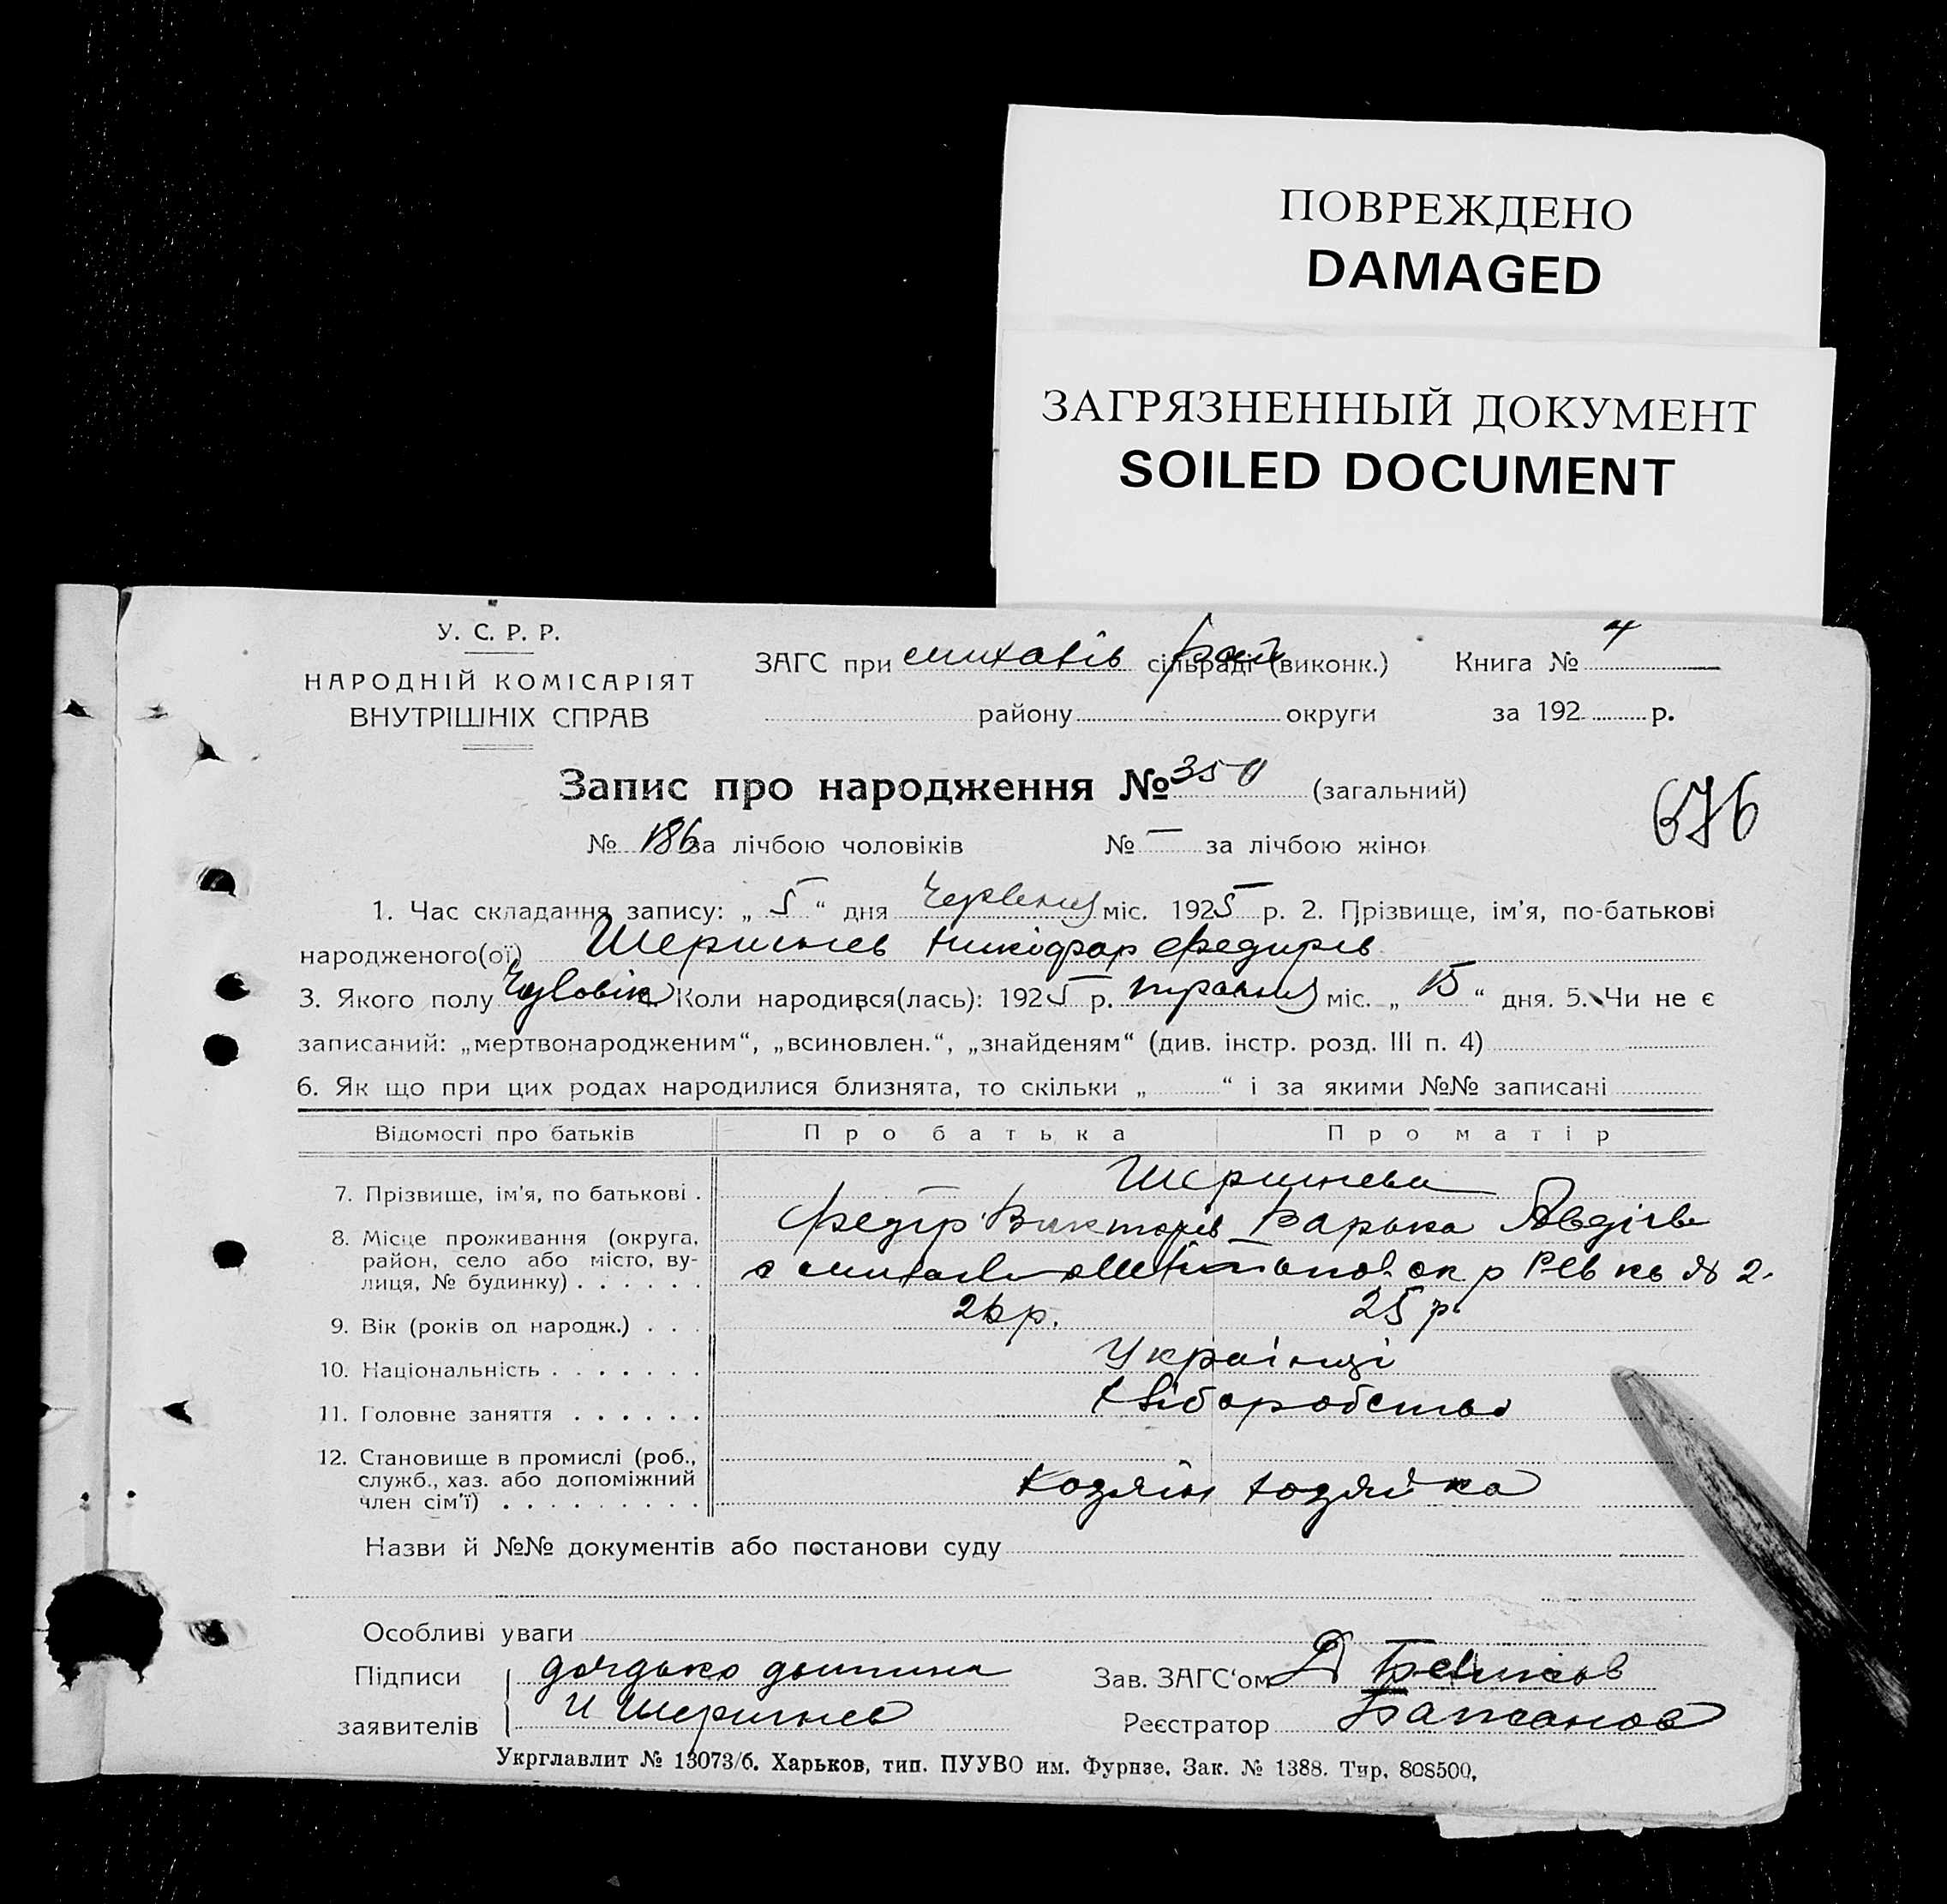 ПОВРЕЖДЕНО
DAMAGED
ЗАГРЯЗНЕННЫЙ ДОКУМЕНТ
SOILED DOCUMENT
У. С. Р. Р.
НАРОДНІЙ КОМІСАРІЯТ
ВНУТРІШНІХ СПРАВ
ЗАГС при сільраді (виконк.) Книга №
району округи за 192 р.
Запис про народження № 350 (загальний)
676
№ 186 за лічбою чоловіків № — за лічбою жінок
1. Час складання запису: „ 5 “ дня Червень міс. 1925 р. 2. Прізвище, ім'я, по-батькові
народженого(ої) Шершнев Никифор Федирів
3. Якого полу Чоловік Коли народився(лась): 1925 р. травня міс. „ 15 “ дня. 5. Чи не є
записаний: „мертвонародженим“, „всиновлен.“, „знайденям“ (див. інстр. розд. III п. 4)
6. Як що при цих родах народилися близнята, то скільки „ “ і за якими №№ записані
Відомості про батьків Про батька Про матір
7. Прізвище, ім'я, по батькові . Шершневи
Федір Викторів Варька Авдієв
8. Місце проживання (округа,
район, село або місто, ву-
лиця, № будинку) . . . . . .
№ 2.
9. Вік (років од народж.) . . . 26 р. 25 р.
10. Національність . . . . . . . Українці
11. Головне заняття . . . . . . хліборобство
12. Становище в промислі (роб.,
служб., хаз. або допоміжний
член сім'ї) . . . . . . . . . хозяїн хозяйка
Назви й №№ документів або постанови суду
Особливі уваги
Підписи дядько дытины Зав. ЗАГС'ом
заявителів И Шершнев Реєстратор Бажанов
Укрглавлит № 13073/б. Харьков, тип. ПУУВО им. Фрунзе, Зак. № 1388. Тир. 808500,